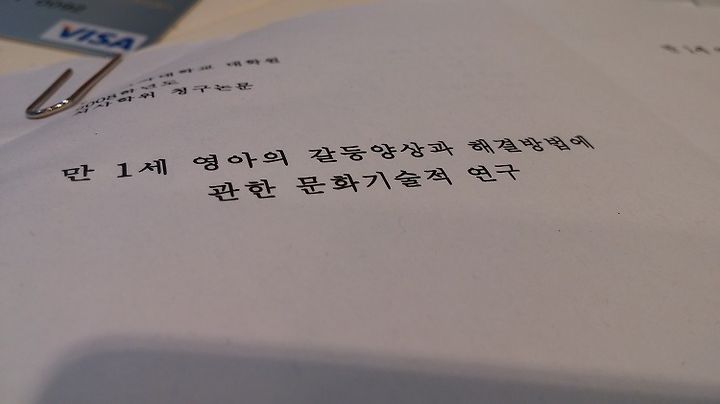 VISA
대학교 대학원
2008학년도
석사학위 청구논문
만 1세 영아의 갈등양상과 해결방법에
관한 문화기술적 연구